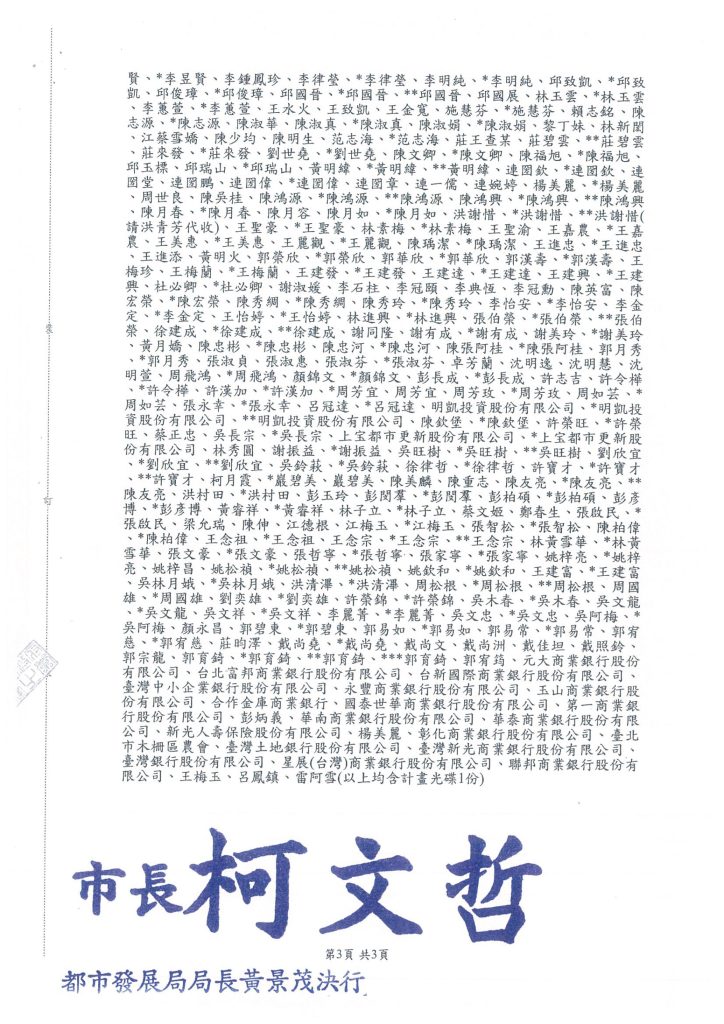 賢、*李昱賢、李鍾鳳珍、李律瑩、*李律瑩、李明純、*李明純、邱致凱、*邱致
凱、邱俊璋、*邱俊璋、邱國晉、*邱國晉、**邱國晉、邱國展、林玉雲、*林玉雲
、李蕙萱、*李蕙萱、王水火、王致凱、王金寬、施慧芬、*施慧芬、賴志銘、陳
志源、*陳志源、陳淑華、陳淑真、*陳淑真、陳淑娟、*陳淑娟、黎丁妹、林新閏
、江蔡雪嬌、陳少均、陳明生、范志海、*范志海、莊王查某、莊碧雲、**莊碧雲
、莊來發、*莊來發、劉世堯、*劉世堯、陳文卿、*陳文卿、陳福旭、*陳福旭、
邱玉標、邱瑞山、*邱瑞山、黃明緯、*黃明緯、**黃明緯、連囼欽、*連囼欽、連
囼堂、連囼鵬、連囼偉、*連囼偉、連囼章、連一儒、連婉婷、楊美麗、*楊美麗
、周世良、陳吳桂、陳鴻源、*陳鴻源、**陳鴻源、陳鴻興、*陳鴻興、**陳鴻興
、陳月春、*陳月春、陳月容、陳月如、*陳月如、洪謝惜、*洪謝惜、**洪謝惜(
請洪青芳代收)、王聖豪、*王聖豪、林素梅、*林素梅、王聖渝、王嘉農、*王嘉
農、王美惠、*王美惠、王麗觀、*王麗觀、陳瑀潔、*陳瑀潔、王進忠、*王進忠
、王進添、黃明火、郭榮欣、*郭榮欣、郭華欣、*郭華欣、郭漢壽、*郭漢壽、王
梅珍、王梅蘭、*王梅蘭、王建發、*王建發、王建達、*王建達、王建興、*王建
興、杜必卿、*杜必卿、謝淑媛、李石柱、李冠頤、李典恆、李冠勳、陳英富、陳
宏榮、*陳宏榮、陳秀綢、*陳秀綢、陳秀玲、*陳秀玲、李怡安、*李怡安、李金
定、*李金定、王怡婷、*王怡婷、林進興、*林進興、張伯榮、*張伯榮、**張伯
榮、徐建成、*徐建成、**徐建成、謝同隆、謝有成、*謝有成、謝美玲、*謝美玲
、黃月嬌、陳忠彬、*陳忠彬、陳忠河、*陳忠河、陳張阿桂、*陳張阿桂、郭月秀
、*郭月秀、張淑貞、張淑惠、張淑芬、*張淑芬、卓芳蘭、沈明逸、沈明慧、沈
明萱、周飛鴻、*周飛鴻、顏錦文、*顏錦文、彭長成、*彭長成、許志吉、許令樺
、*許令樺、許漢加、*許漢加、*周芳宜、周芳宜、周芳玫、*周芳玫、周如芸、*
周如芸、張永幸、*張永幸、呂冠達、*呂冠達、明凱投資股份有限公司、*明凱投
資股份有限公司、**明凱投資股份有限公司、陳欽堡、*陳欽堡、許榮旺、*許榮
旺、蔡正忠、吳長宗、*吳長宗、上宝都市更新股份有限公司、*上宝都市更新股
份有限公司、林秀圓、謝振益、*謝振益、吳旺樹、*吳旺樹、**吳旺樹、劉欣宜
、*劉欣宜、**劉欣宜、吳鈴萩、*吳鈴萩、徐律哲、*徐律哲、許寶才、*許寶才
、**許寶才、柯月霞、*巖碧美、巖碧美、陳美麟、陳重志、陳友亮、*陳友亮、**
陳友亮、洪村田、*洪村田、彭玉玲、彭閔羣、*彭閔羣、彭柏碩、*彭柏碩、彭彥
博、*彭彥博、黃睿祥、*黃睿祥、林子立、*林子立、蔡文姬、鄭春生、張啟民、*
張啟民、梁允瑞、陳伸、江德根、江梅玉、*江梅玉、張智松、*張智松、陳柏偉
、*陳柏偉、王念祖、*王念祖、王念宗、*王念宗、**王念宗、林黃雪華、*林黃
雪華、張文豪、*張文豪、張哲寧、*張哲寧、張家寧、*張家寧、姚梓亮、*姚梓
亮、姚梓昌、姚松禎、*姚松禎、**姚松禎、姚欽和、*姚欽和、王建富、*王建富
、吳林月娥、*吳林月娥、洪清潭、*洪清潭、周松根、*周松根、**周松根、周國
雄、*周國雄、劉奕雄、*劉奕雄、許榮錦、*許榮錦、吳木春、*吳木春、吳文龍
、*吳文龍、吳文祥、*吳文祥、李麗菁、*李麗菁、吳文忠、*吳文忠、吳阿梅、*
吳阿梅、顏永昌、郭碧東、*郭碧東、郭易如、*郭易如、郭易常、*郭易常、郭宥
慈、*郭宥慈、莊昀澤、戴尚堯、*戴尚堯、戴尚文、戴尚洲、戴佳坦、戴照鈴、
郭宗龍、郭育錡、*郭育錡、**郭育錡、***郭育錡、郭宥筠、元大商業銀行股份
有限公司、台北富邦商業銀行股份有限公司、台新國際商業銀行股份有限公司、
臺灣中小企業銀行股份有限公司、永豐商業銀行股份有限公司、玉山商業銀行股
份有限公司、合作金庫商業銀行、國泰世華商業銀行股份有限公司、第一商業銀
行股份有限公司、彭炳義、華南商業銀行股份有限公司、華泰商業銀行股份有限
公司、新光人壽保險股份有限公司、楊美麗、彰化商業銀行股份有限公司、臺北
市木柵區農會、臺灣土地銀行股份有限公司、臺灣新光商業銀行股份有限公司、
臺灣銀行股份有限公司、星展(台灣)商業銀行股份有限公司、聯邦商業銀行股份有
限公司、王梅玉、呂鳳鎮、雷阿雪(以上均含計畫光碟1份)
市長柯文哲
第3頁 共3頁
都市發展局局長黃景茂決行